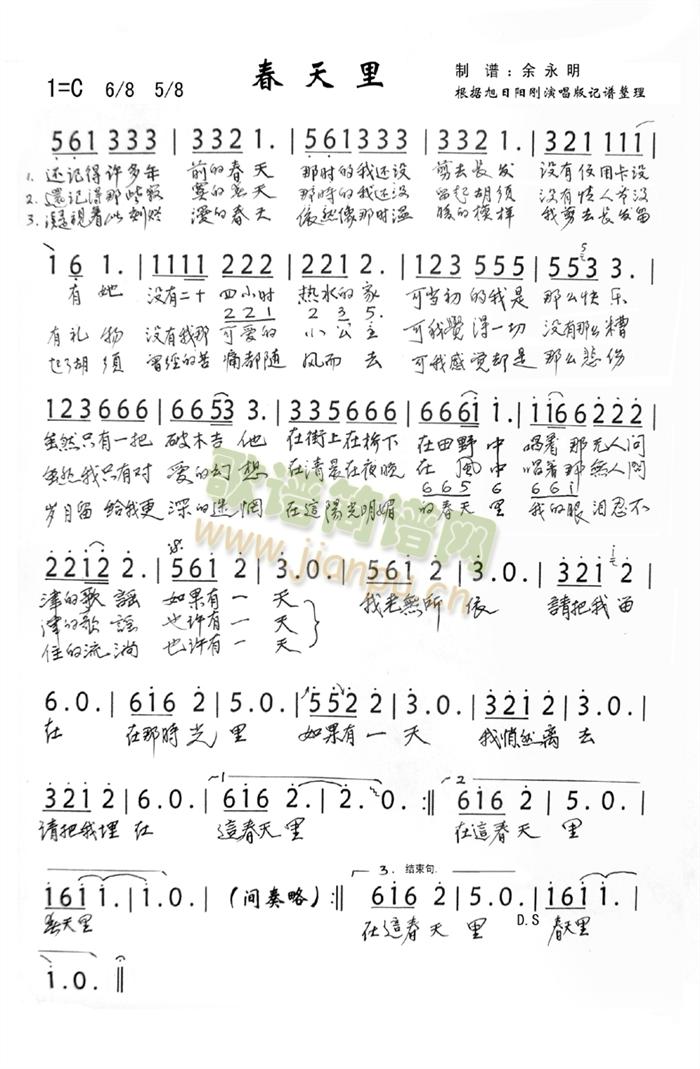 春天里
1=C 6/8 5/8
制 谱：余永明
根据旭日阳刚演唱版记谱整理
561 333 | 332 1. | 561 333 | 332 1. | 321 111 |
1. 还记得许多年 前的春天 那时的我还没 剪去长发 没有信用卡没
2. 還记得那些寂 寞的春天 那時的我还没 留起胡须 没有情人节没
3. 凝視着此刻烂 漫的春天 依然像那时温 暖的模样 我剪去长发留
1 6 1. | 1111 222 | 2221 2. | 123 555 | 5553 3. |
有 她 没有二十 四小时 热水的家 可当初的我是 那么快乐
221 235.
有礼物 没有我那 可爱的 小公主 可我觉得一切 没有那么糟
起胡须 曾经的苦 痛都随 风而去 可我感觉却是 那么悲伤
123666 | 6653 3. | 335666 | 6661 1. | 1166222 |
虽然只有一把 破木吉他 在街上在桥下 在田野中 唱着那无人问
虽然我只有对 爱的幻想 在清晨在夜晚 在風中 唱着那無人問
6656 661
岁月留给我更 深的迷惘 在這陽光明媚 的春天里 我的眼泪忍不
2212 2. | 561 2 | 3.0. | 561 2 | 3.0. | 321 2 |
津的歌謡 如果有一天 我老無所依 請把我留
津的歌謡 也许有一天
住的流淌 也许有一天
6.0. | 616 2 | 5.0. | 552 2 | 3.0. | 321 2 | 3.0. |
在 在那時光里 如果有一天 我悄然离去
321 2 | 6.0. | 616 2. | 2.0. :‖ 616 2 | 5.0. |
1 2
請把我埋在 這春天里 在這春天里
161 1. | 1.0. | (间奏略) :‖ 616 2 | 5.0. | 161 1. |
3. 结束句.
D.S
春天里 在這春天里 春天里
1.0. ‖
歌谱简谱网
www.jianpu.cn